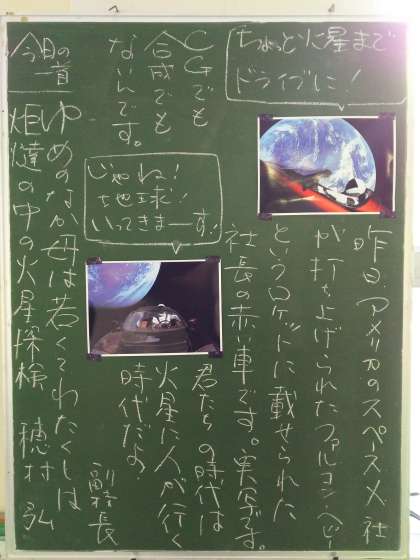 ちょっと火星まで
ドライブに！
昨日、アメリカのスペースX社
が打ち上げられたファルコンヘビー
というロケットに載せられた
社長の赤い車です。実写です。
CGでも
合成でも
ないんです。
じゃね！
地球！
いってきまーす！
君たちの時代は
火星に人が行く
時代だよ
副校長
今日の一首
ゆめのなか母は若くてわたくしは
炬燵の中の火星探検 穂村弘